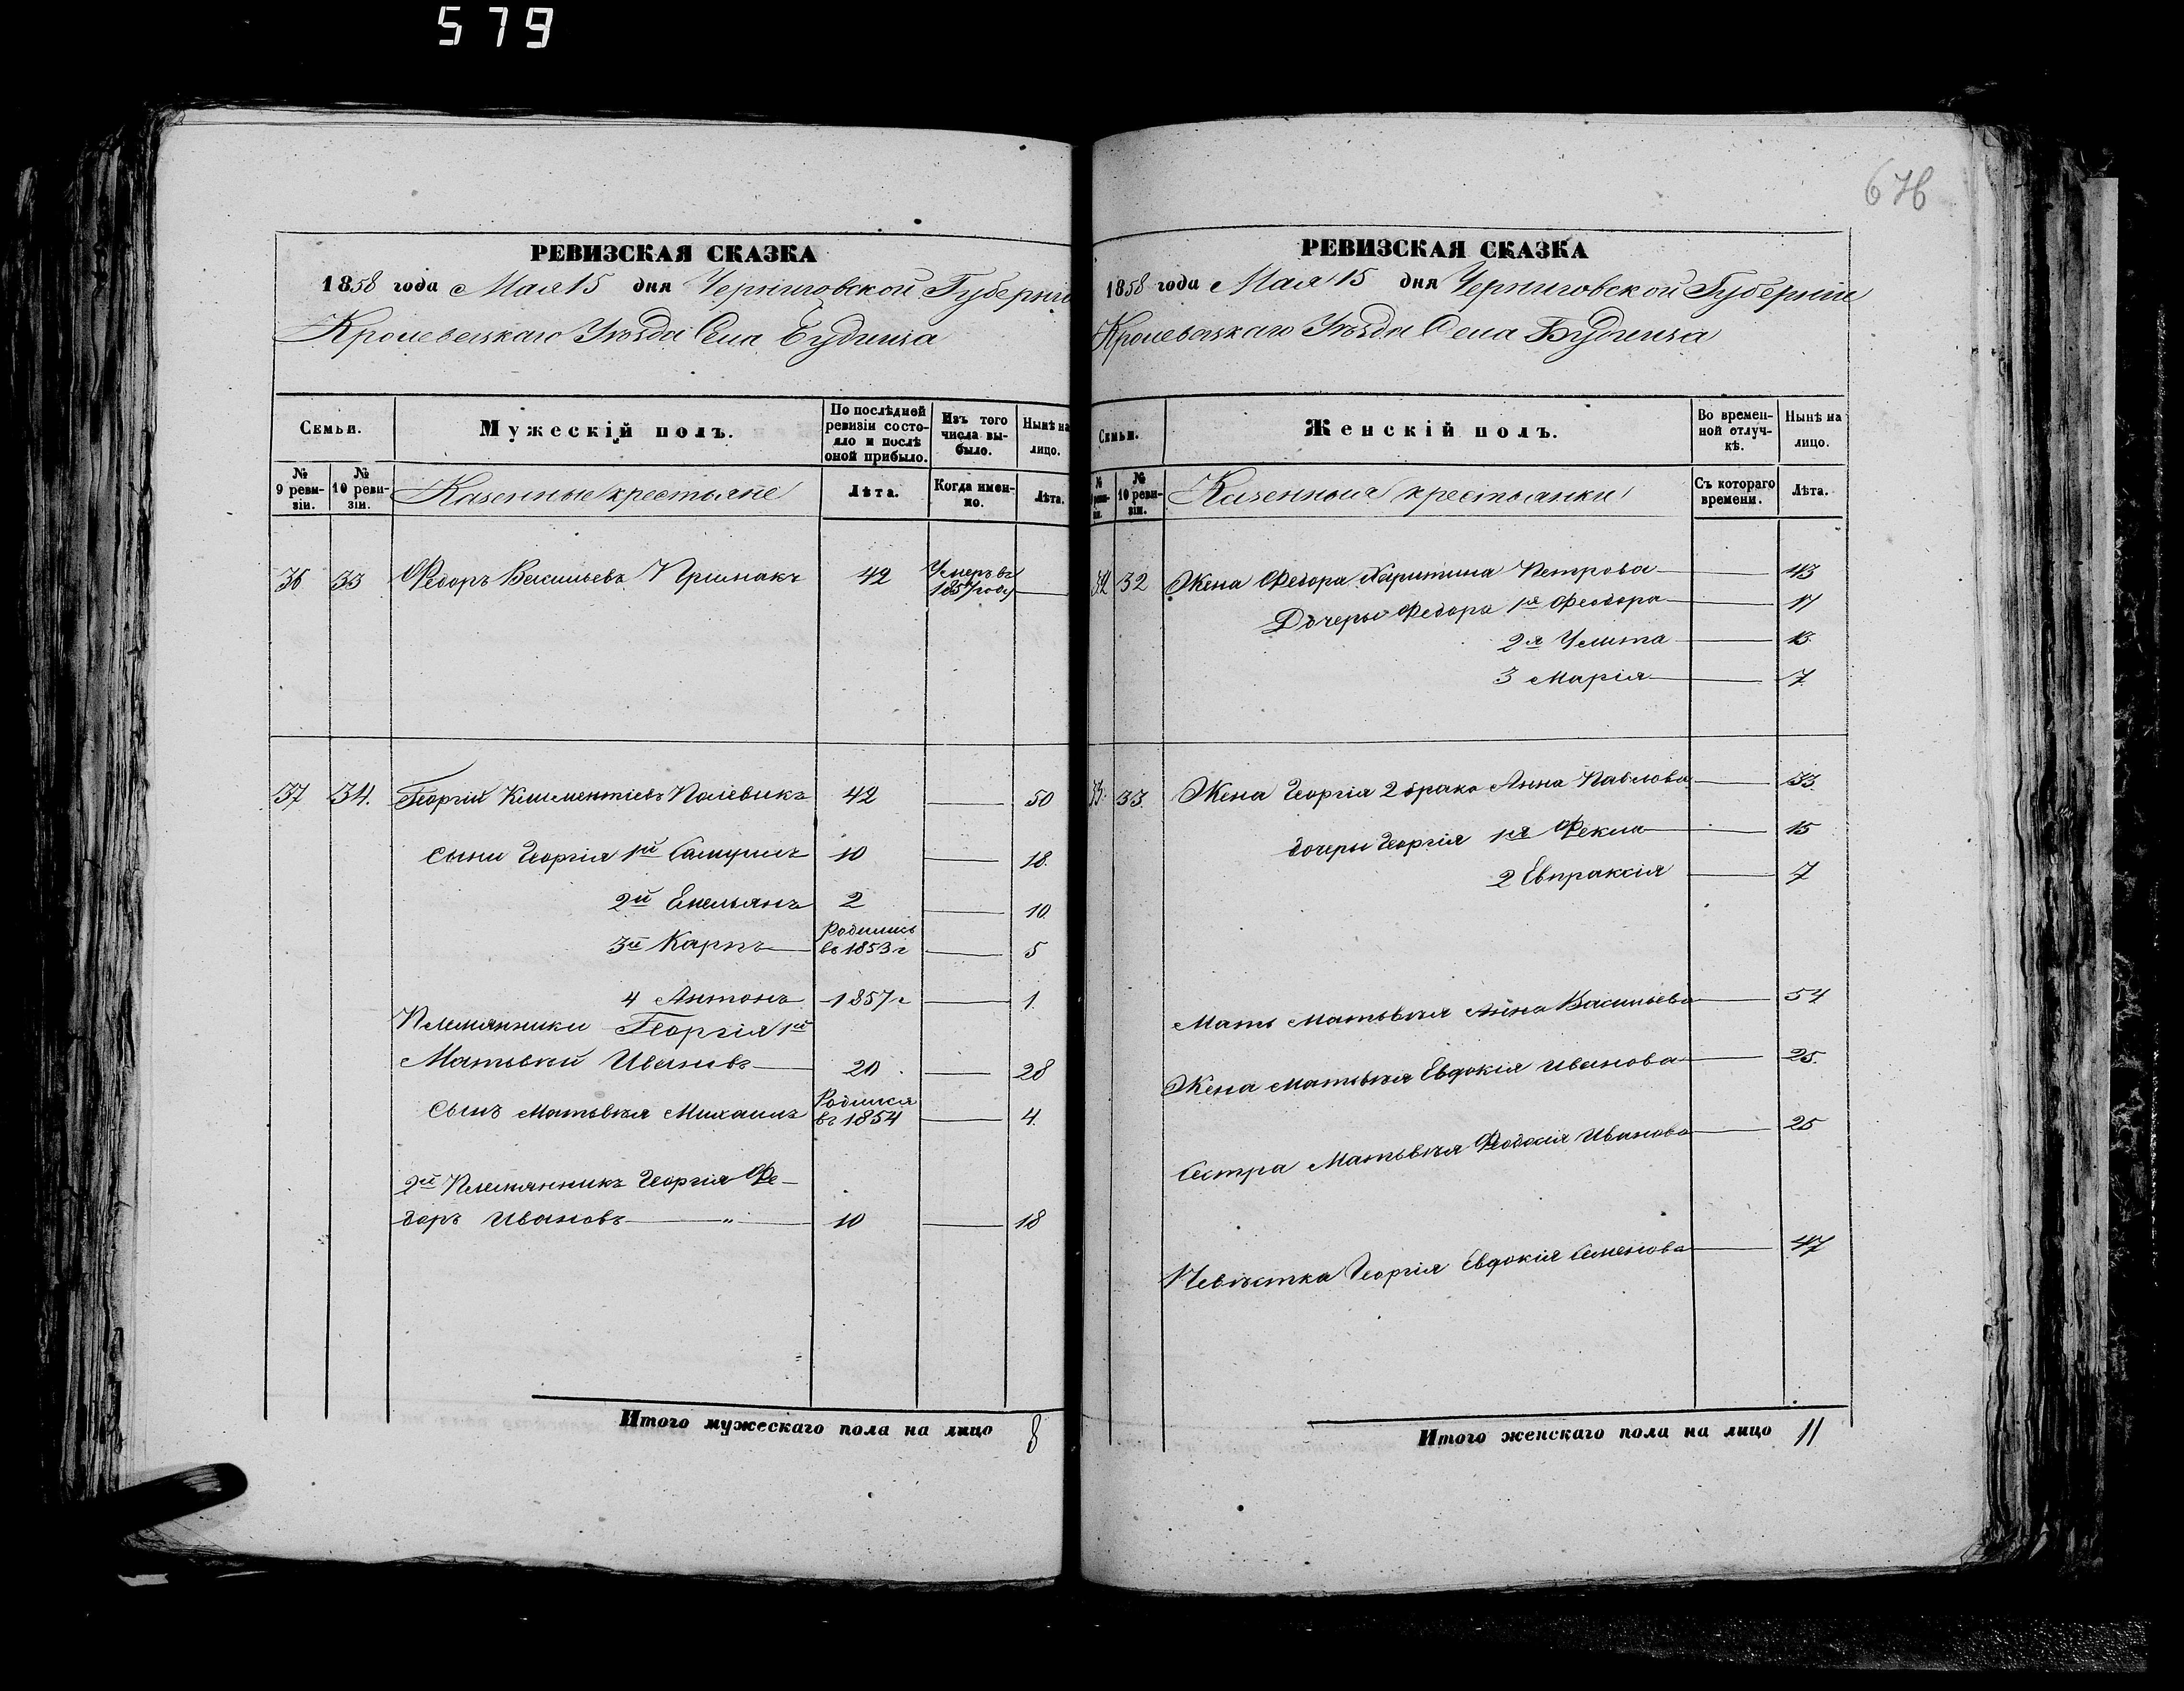 579
676
РЕВИЗСКАЯ СКАЗКА
1858 года Мая 15 дня Черниговской Губерніи
Кролевецкаго Уѣзда Села Будища
Семьи.
Мужескій полъ.
По послѣдней ревизіи состояло и послѣ оной прибыло.
Изъ того числа выбыло.
Нынѣ на лицо.
№ 9 ревизіи.
№ 10 ревизіи.
Казенные крестьяне
Лѣта.
Когда именно.
Лѣта.
36 33 Федоръ Васильевъ Приймакъ 42 Умеръ въ 1857 году —
37 34. Георгій Климентіевъ Полевикъ 42 — 50
Сыны Георгія 1й Самуилъ 10 — 18.
2й Емельянъ 2 — 10.
3й Карпъ — родились въ 1853 г — 5
4 Антонъ — 1857 г — 1.
Племянники Георгія 1й
Матьвей Ивановъ — 20 — 28
Сынъ Матьвѣя Михаилъ Родился въ 1854 — 4.
2й Племянникъ Георгія Фе-
доръ Ивановъ — " — 10 — 18
Итого мужескаго пола на лицо 8
РЕВИЗСКАЯ СКАЗКА
1858 года Мая 15 дня Черниговской Губерніи
Кролевецкаго Уѣзда Села Будища
Семьи.
Женскій полъ.
Во временной отлучкѣ.
Нынѣ на лицо.
№ 9 ревизіи.
№ 10 ревизіи.
Казенныя крестьянки
Съ котораго времени.
Лѣта.
32 32 Жена Федора Харитина Петрова — 43
Дочеры Федора 1я Феодора — 17
2я Улита — 13
3 Марія — 7.
33. 33. Жена Георгія 2 брака Анна Павлова — 33.
дочеры Георгія 1я Фекла — 15
2 Евпраксія — 7
Мать Матьвѣя Анна Васильева — 54
Жена Матьвѣя Евдокія Иванова — 25.
Сестра Матьвѣя Феодосія Иванова — 25
Невѣстка Георгія Евдокія Семенова — 47
Итого женскаго пола на лицо 11